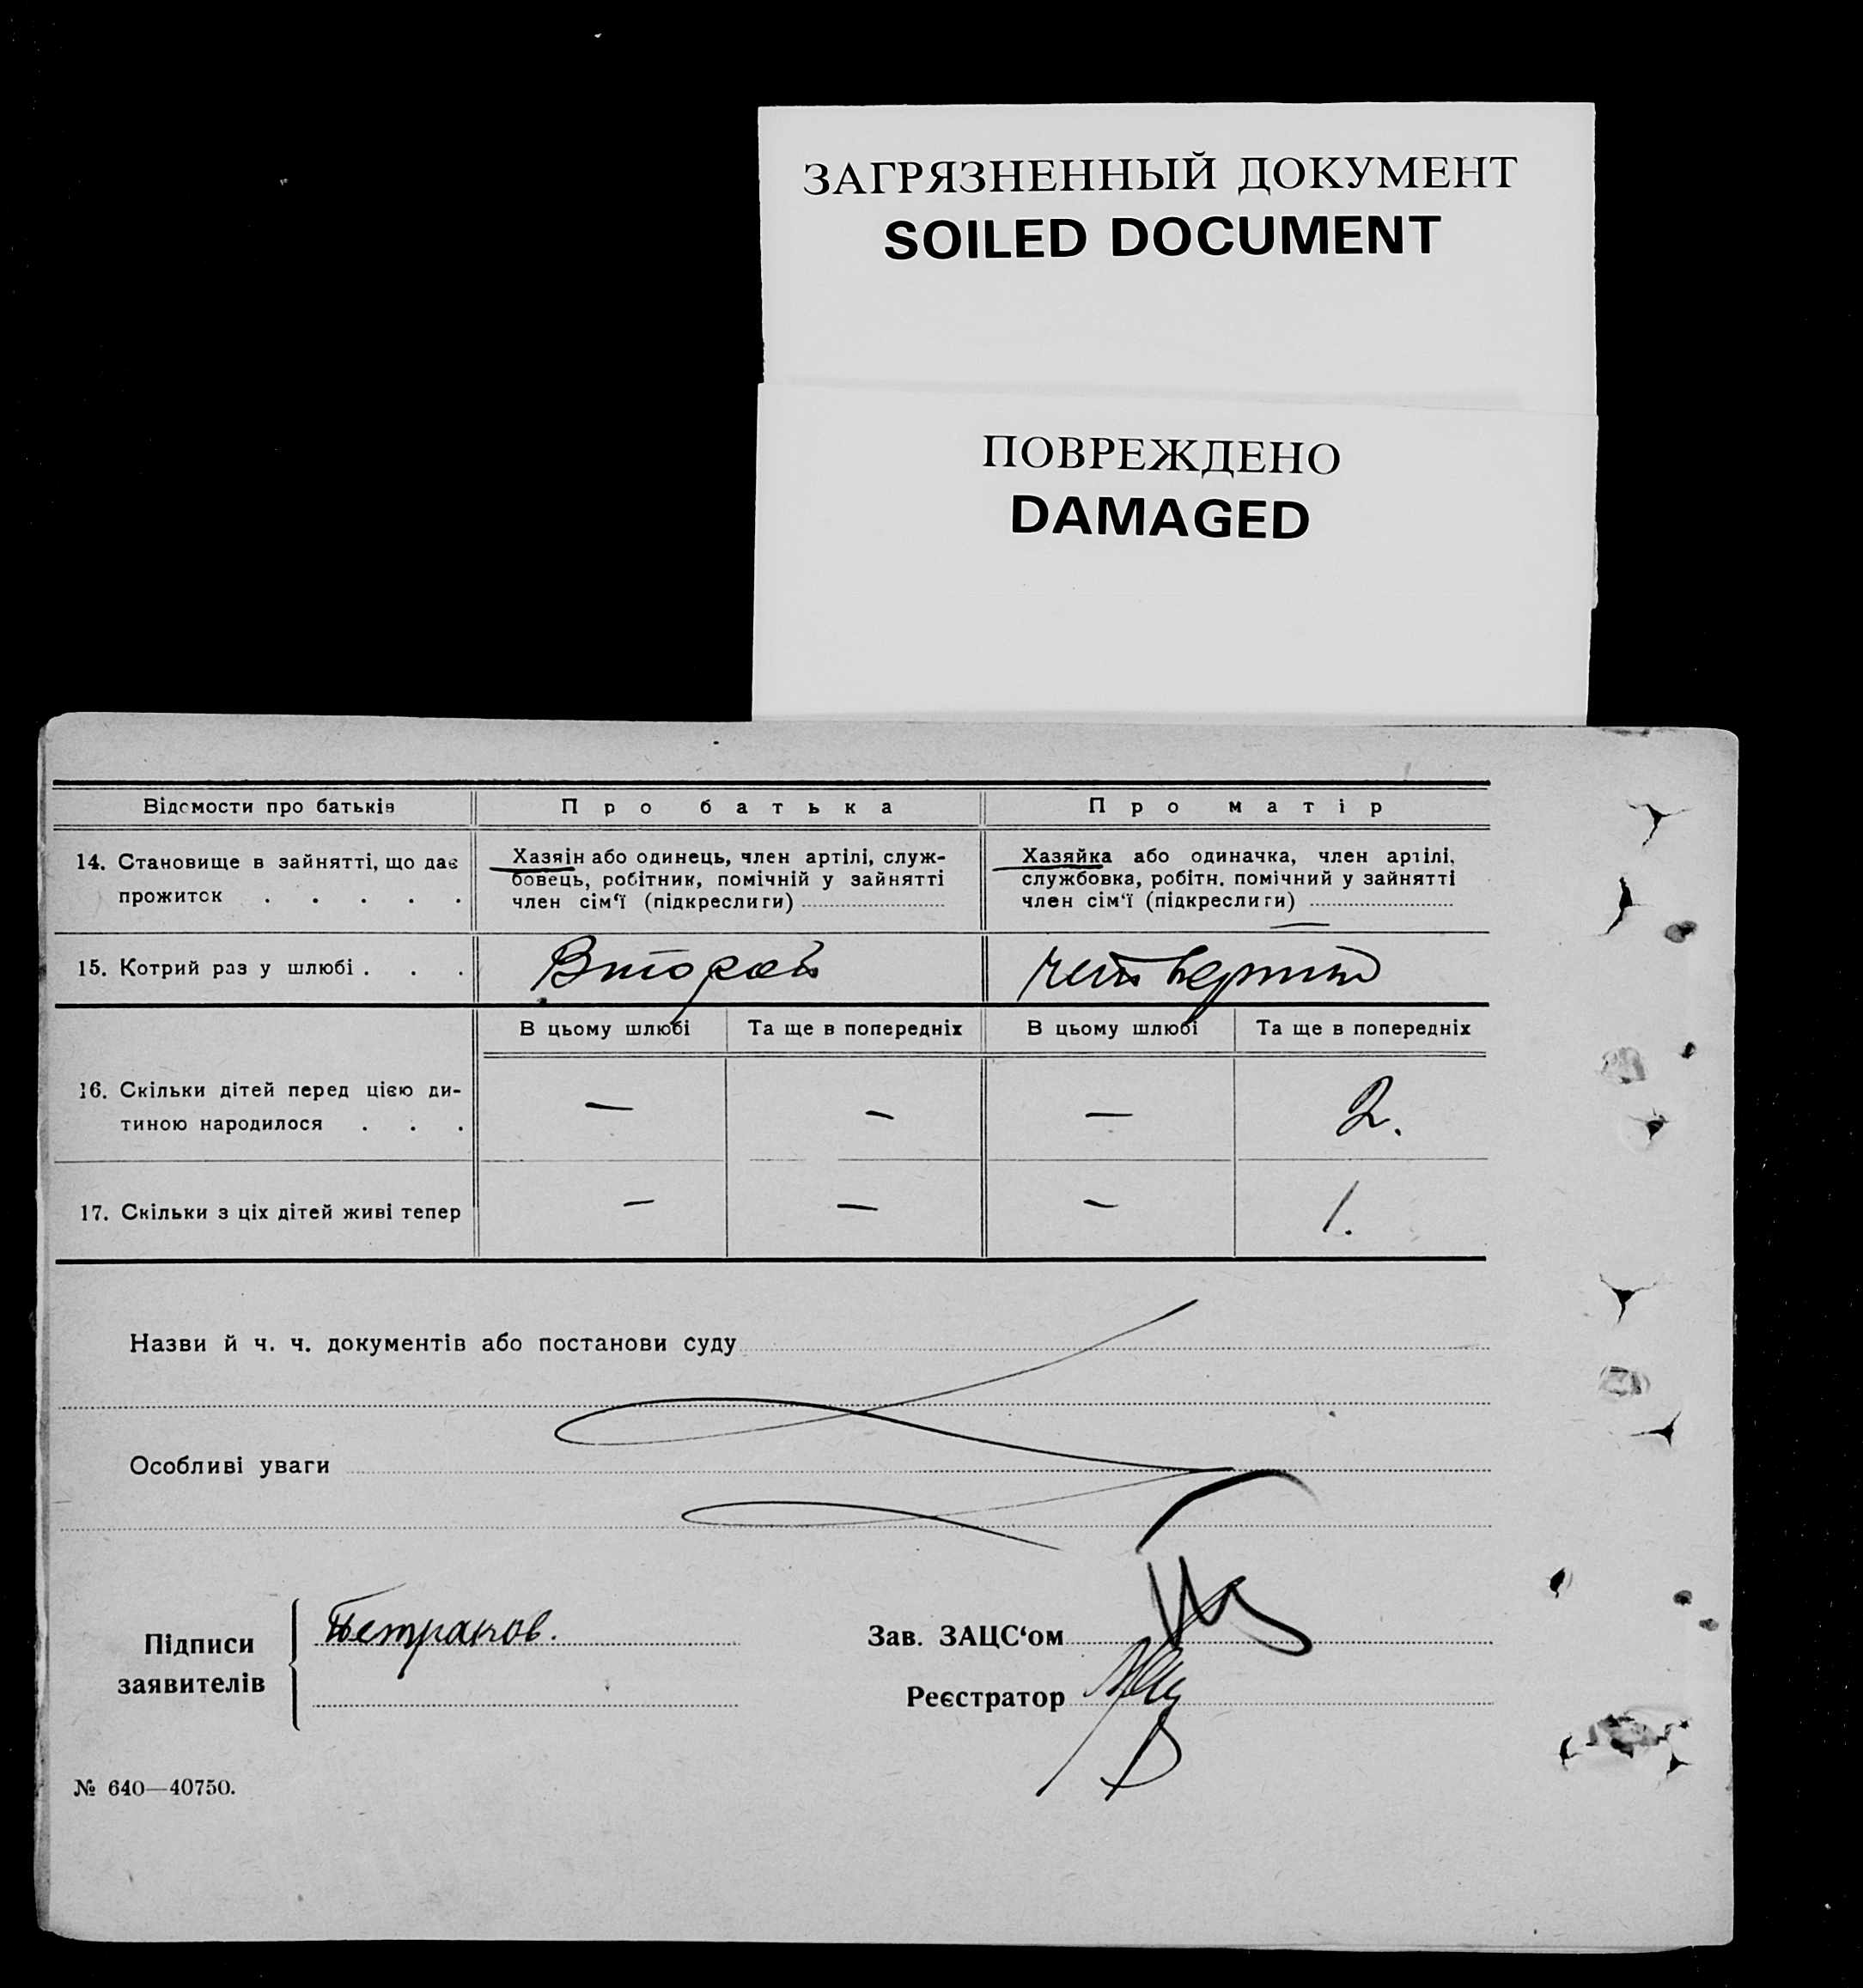 ЗАГРЯЗНЕННЫЙ ДОКУМЕНТ
SOILED DOCUMENT
ПОВРЕЖДЕНО
DAMAGED
Відомости про батьків
Про батька
Про матір
14. Становище в зайнятті, що дає
прожиток . . . . .
Хазяїн або одинець, член артілі, служ-
бовець, робітник, помічній у зайнятті
член сім‘ї (підкреслиги)
Хазяйка або одиначка, член артілі,
службовка, робітн. помічний у зайнятті
член сім‘ї (підкреслиги)
15. Котрий раз у шлюбі . . .
Второй
В цьому шлюбі
Та ще в попередніх
В цьому шлюбі
Та ще в попередніх
16. Скільки дітей перед цією ди-
тиною народилося . . .
—
—
—
2.
17. Скільки з ціх дітей живі тепер
—
—
—
1.
Назви й ч. ч. документів або постанови суду
Особливі уваги
Підписи
заявителів
Петраков.
Зав. ЗАЦС‘ом
Реєстратор
№ 640—40750.